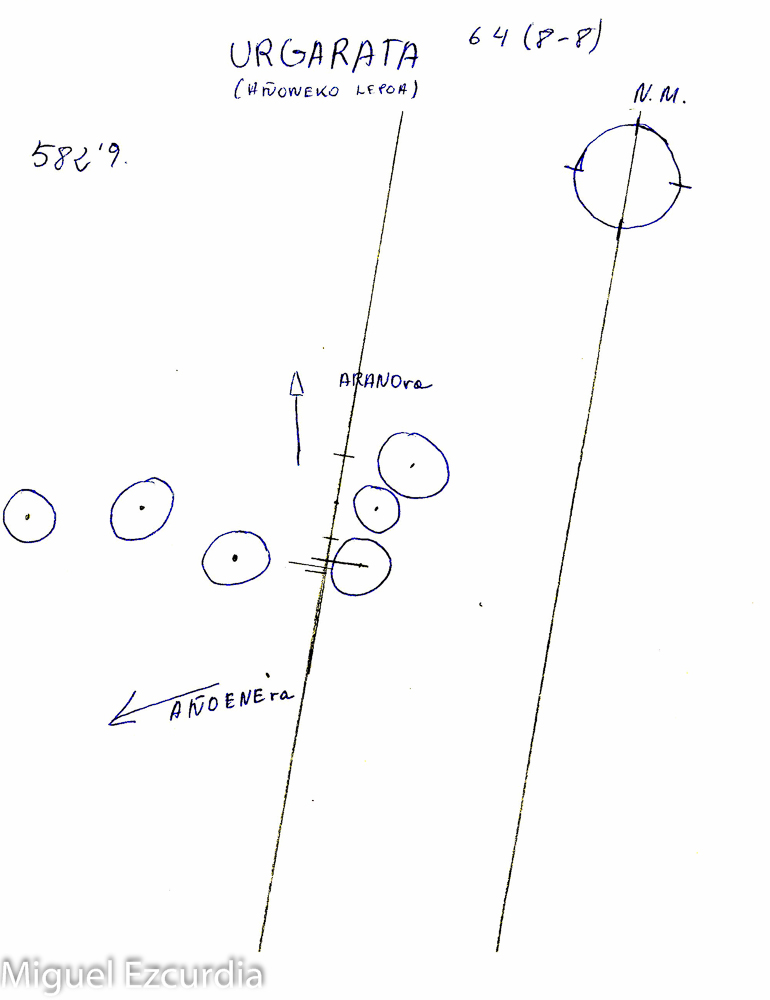 URGARATA
64 (8-8)
(AÑONEKO LEPOA)
N.M.
582'9.
ARANOra
AÑOENE'ra
Miguel Ezcurdia